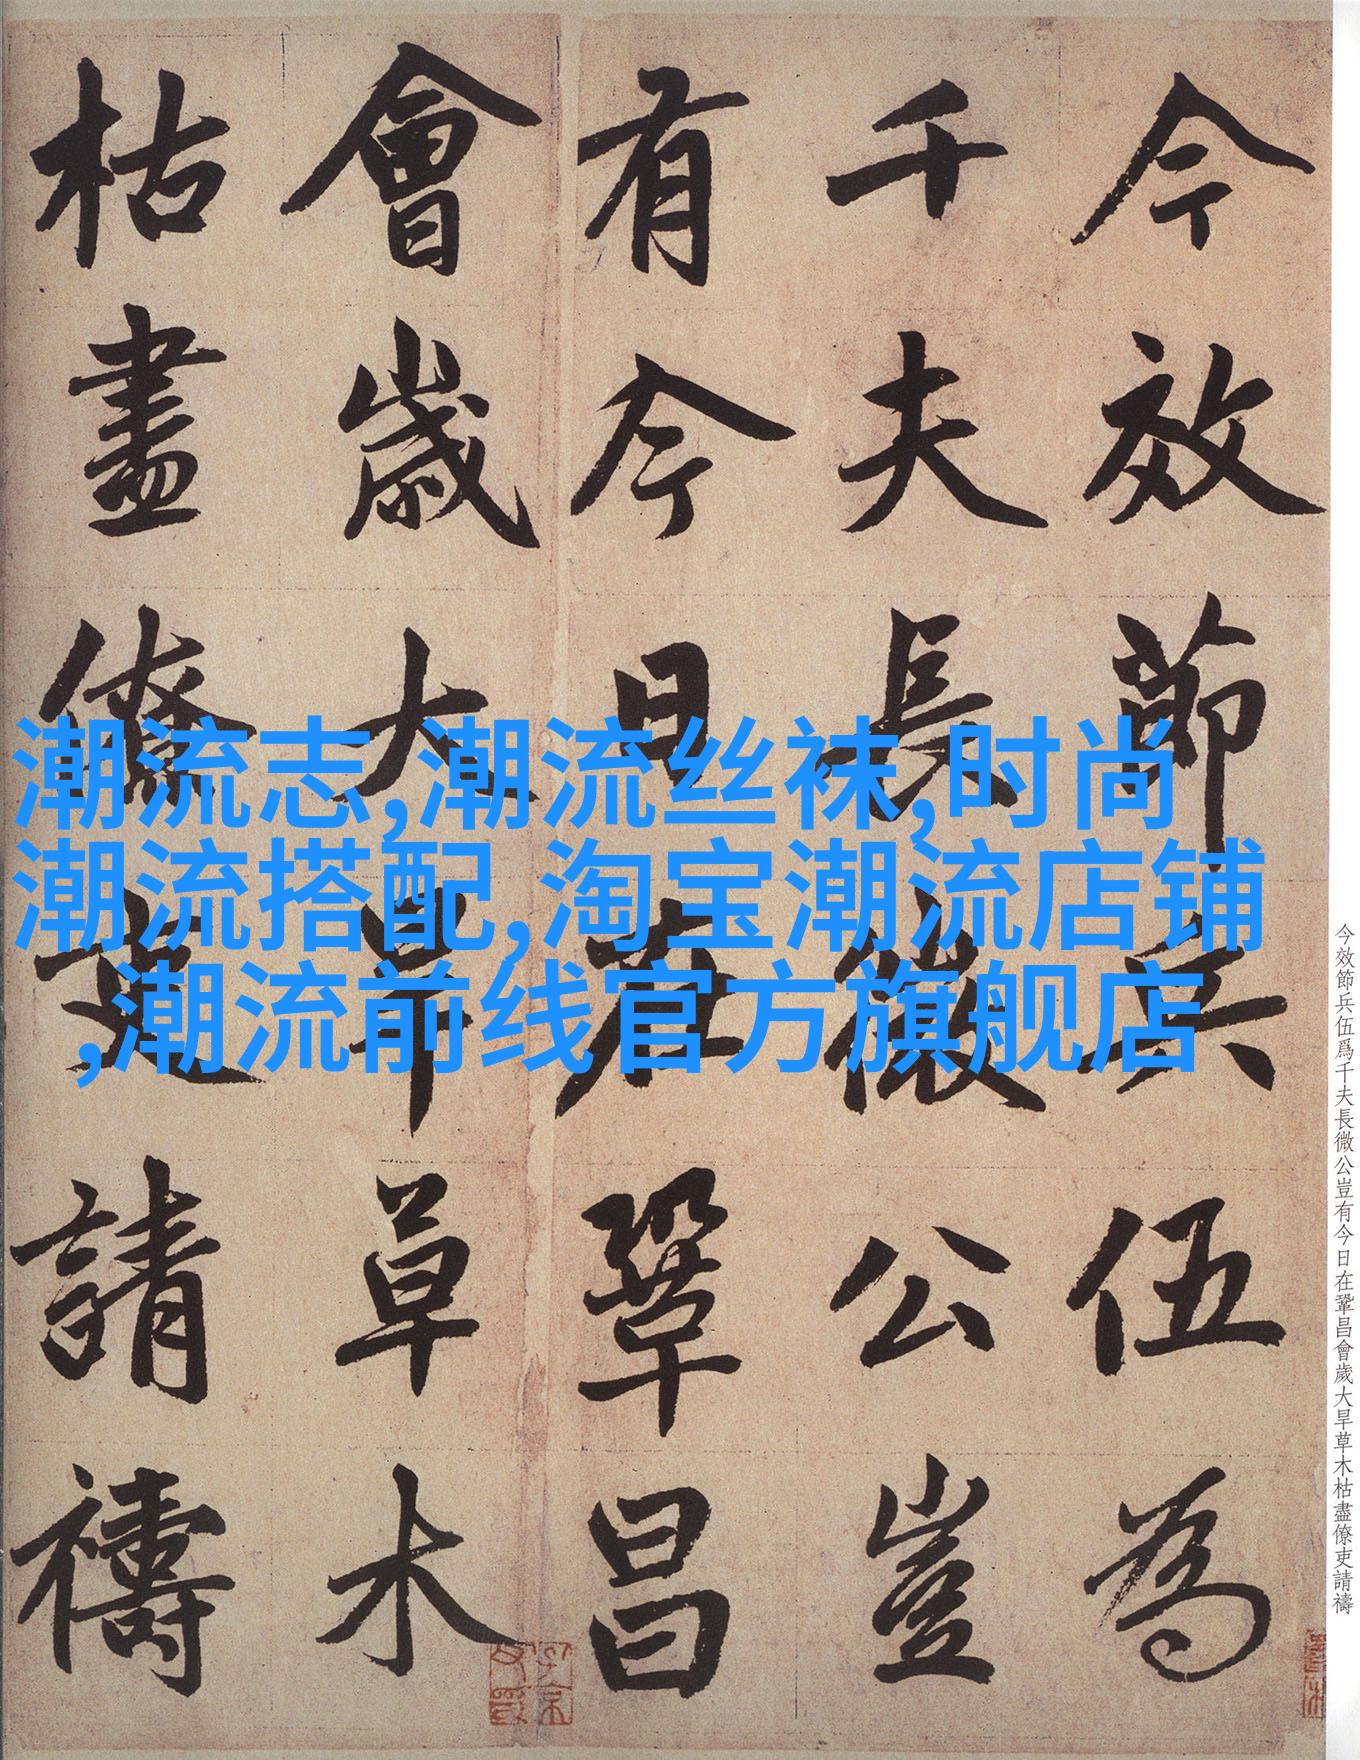 今效節兵伍為
千夫長微公豈
有今日在鞏昌
會歲大旱草木
枯盡僚吏請禱
潮流志,潮流丝袜,时尚
潮流搭配,淘宝潮流店铺
,潮流前线官方旗舰店
今效節兵伍爲千夫長微公豈有今日在鞏昌會歲大旱草木枯盡僚吏請禱